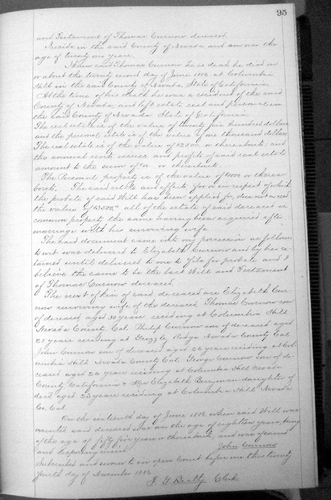 95
and Testament of Thomas Curnow deceased.
Reside in the said County of Nevada and am over the
age of twenty one years.
Thomas Curnow is dead he died on
or about the twenty second day of June 1882 at Columbia
Hill in the said County of Nevada State of California
At the time of his death he was a resident of the said
County of Nevada, and left estate real and personal in
the said County of Nevada State of California
The real estate is of the value of hundred dollars
and the personal estate is of the value of one thousand dollars
The real estate is of the value of or thereabouts and
the annual rents issues and profits of said real estate
amount to the sum of or thereabouts.
The Personal property is of the value of or there
abouts. The said estate and effects for or in respect of which
the probate of said Will has been applied for, does not exceed
the value of all of the estate of said deceased is
common property the same having been acquired after
marriage with his surviving wife.
The said document came into my possession as follows
it was delivered to Elizabeth Curnow and by her re
tained until delivered to me to file for probate and I
believe the same to be the last Will and Testament
of Thomas Curnow deceased.
The next of kin of said deceased are Elizabeth Cur
now surviving wife of the deceased Thomas Curnow son
of deceased aged years residing at Columbia Hill
Nevada County Cal. Philip Curnow son of deceased aged
years residing at Grizzly Ridge Nevada County Cal.
John Curnow son of deceased aged years residing at Col
umbia Hill Nevada County Cal. George Curnow son of de
ceased aged years residing at Columbia Hill Nevada
County California & Mrs Elizabeth daughter of
deceased aged years residing at Columbia Hill Nevada
Co. Cal.
On the sixteenth day of June 1882 when said Will was
executed said deceased was over the age of eighteen years, being
of the age of fifty five years or thereabouts, and was of sound
and disposing mind.
John Curnow
Subscribed and sworn to in open Court before me this twenty
fourth day of November 1882.
Clerk